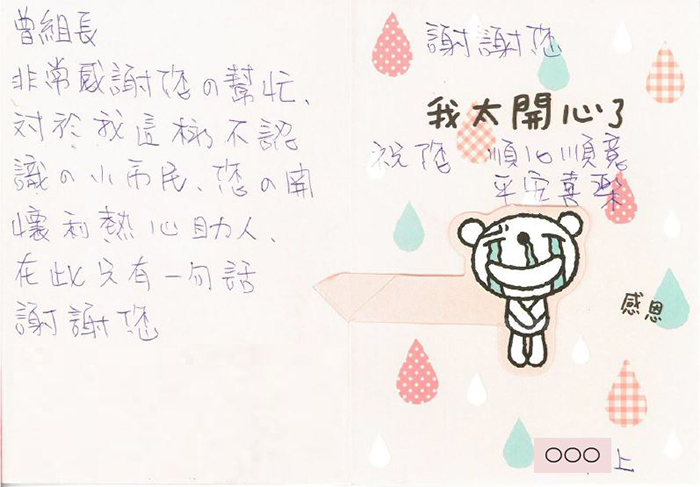 曾組長
非常感謝您の幫忙、
對於我這樣不認
識の小市民、您の關
懷和熱心助人、
在此只有一句話
謝謝您
謝謝您
我太開心了
祝您 順心順意
平安喜樂
感恩
○○○ 上